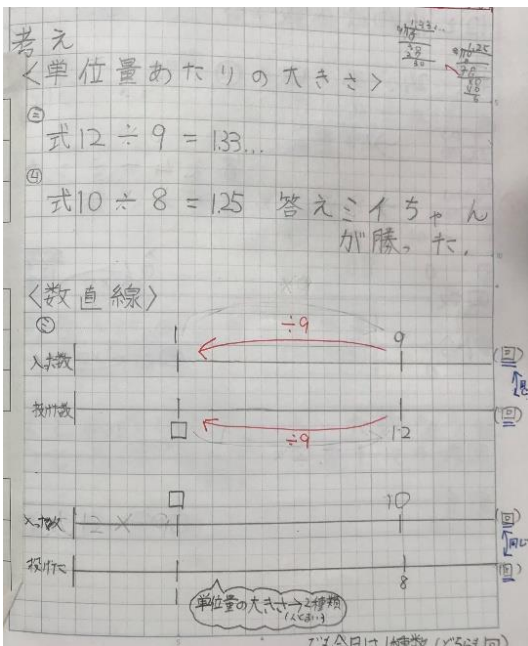 考え
<単位量あたりの大きさ>
ミ
式12÷9=1.33...
4
式10÷8=1.25 答えミイちゃん
が勝った.
<数直線>
ミ
÷9
9
入った数
(回)
投げた数
(回)
□
÷9
12
□
10
入った数
(回)
同じ
投げた
(回)
8
単位量の大きさ→2種類